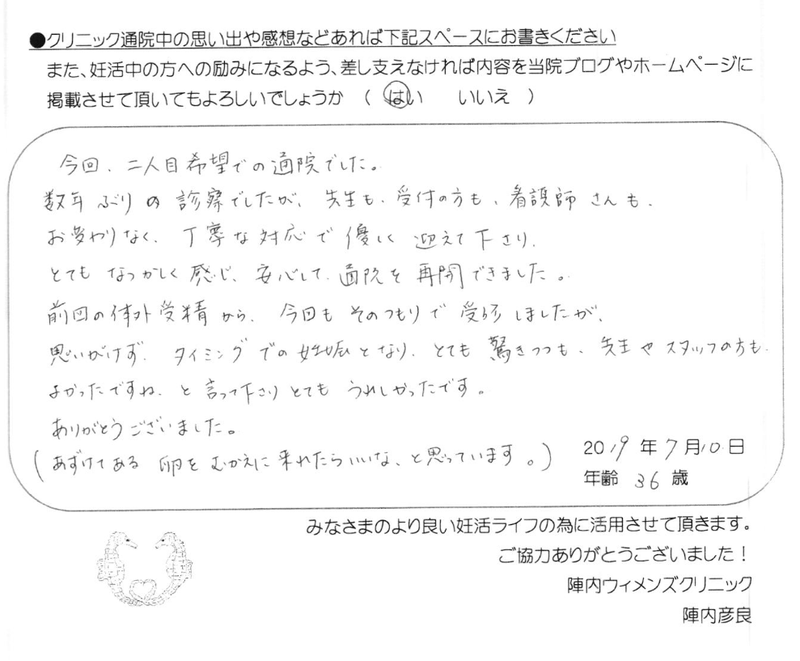 ●クリニック通院中の思い出や感想などあれば下記スペースにお書きください
また、妊活中の方への励みになるよう、差し支えなければ内容を当院ブログやホームページに
掲載させて頂いてもよろしいでしょうか （ はい いいえ ）
今回、二人目希望での通院でした。
数年ぶりの診察でしたが、先生も、受付の方も、看護師さんも、
お変わりなく、丁寧な対応で優しく迎えて下さり、
とてもなつかしく感じ、安心して通院を再開できました。
前回の体外受精から、今回もそのつもりで受診しましたが、
思いがけず、タイミングでの妊娠となり、とても驚きつつも、先生やスタッフの方も、
よかったですね、と言って下さりとてもうれしかったです。
ありがとうございました。
(あずけてある卵をむかえに来れたらいいな、と思っています。)
2019年7月10日
年齢 36歳
みなさまのより良い妊活ライフの為に活用させて頂きます。
ご協力ありがとうございました！
陣内ウィメンズクリニック
陣内彦良